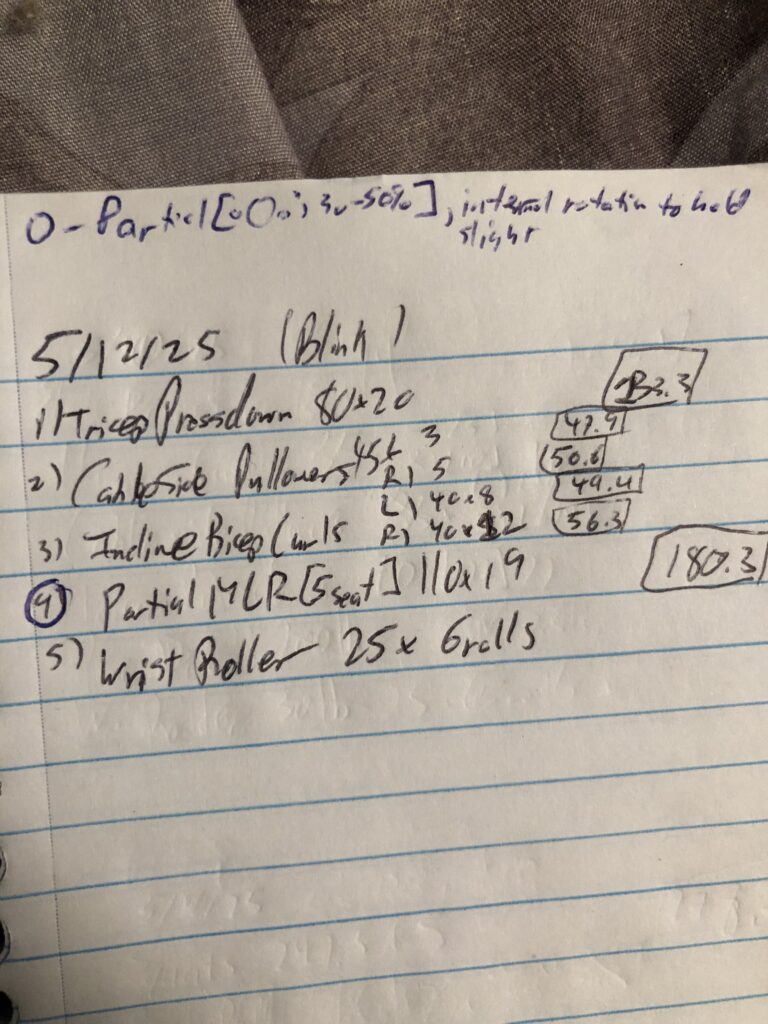 O - Partial [ 30-50%], internal rotation to hold
slight
5/12/25 (Blink)
1) Tricep Pressdown 80x20 133.3
2) Cable Side Pullovers 45 L 3 47.9
R) 5 50.6
L) 40x8 49.4
3) Incline Bicep Curls R) 40x12 56.3
4) Partial MLR [5 seat] 110x19 180.3
5) Wrist Roller 25x 6 rolls